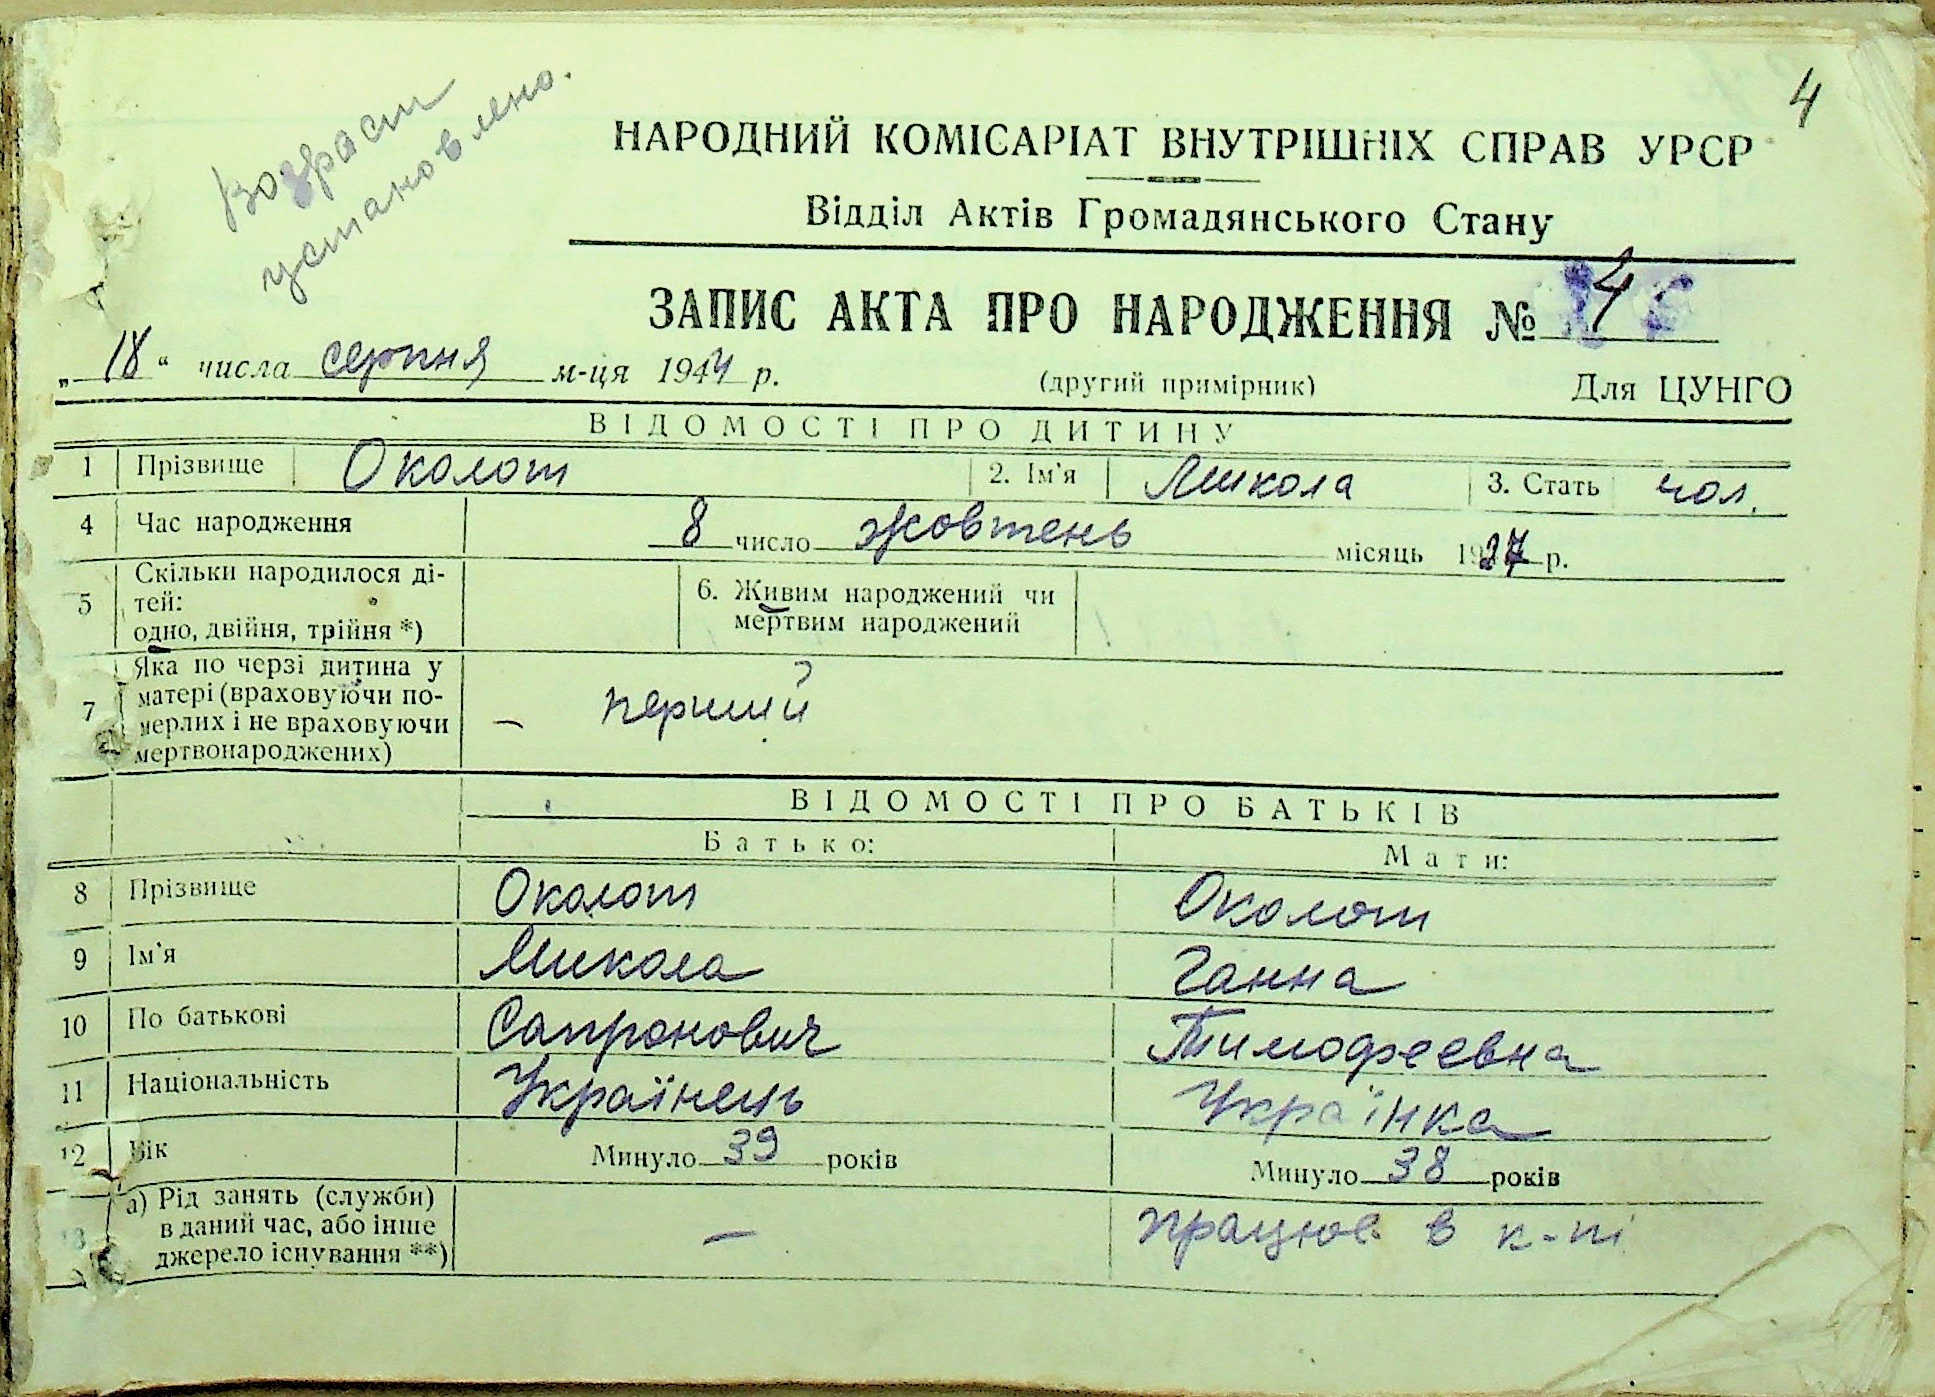 4
Возраст
установлено.
НАРОДНИЙ КОМІСАРІАТ ВНУТРІШНІХ СПРАВ УРСР
Відділ Актів Громадянського Стану
ЗАПИС АКТА ПРО НАРОДЖЕННЯ № 4
„18“ числа серпня м-ця 1944 р. (другий примірник) Для ЦУНГО
ВІДОМОСТІ ПРО ДИТИНУ
1 Прізвище Околот 2. Ім'я Микола 3. Стать чол.
4 Час народження 8 число жовтень місяць 1927 р.
5 Скільки народилося ді-
тей:
одно, двійня, трійня *)
6. Живим народжений чи
мертвим народжений
7 Яка по черзі дитина у
матері (враховуючи по-
мерлих і не враховуючи
мертвонароджених)
– перший
ВІДОМОСТІ ПРО БАТЬКІВ
Батько: Мати:
8 Прізвище Околот Околот
9 Ім'я Микола Ганна
10 По батькові Сапронович Тимофеевна
11 Національність Українець Українка
12 Вік Минуло 39 років Минуло 38 років
13 а) Рід занять (служби)
в даний час, або інше
джерело існування **)
– працюв. в к-пі